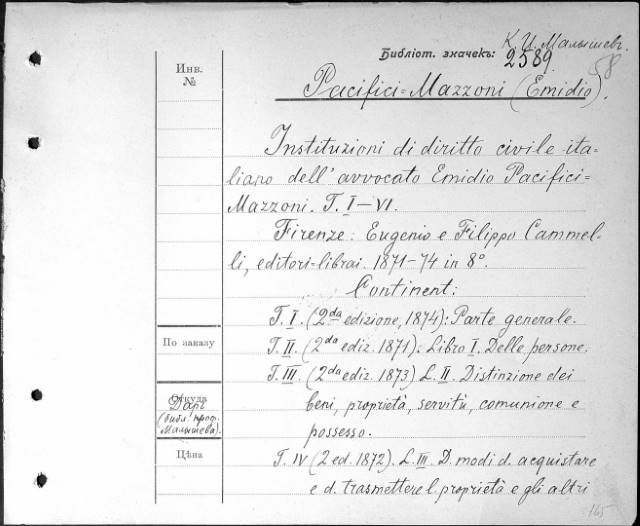 К. И. Малышевъ.
Библіот. значекъ: 2589
58
Инв.
№
Pacifici=Mazzoni (Emidio).
Instituzioni di diritto civile ita=
liano dell'avvocato Emidio Pacifici=
Mazzoni. T. I—VI.
Firenze: Eugenio e Filippo Cammel=
li, editori=librai. 1871-74 in 8º.
Continent:
T. I. (2da edizione, 1874): Parte generale.
T. II. (2da ediz. 1871). Libro I. Delle persone.
T. III. (2da ediz. 1873) L. II. Distinzione dei
beni, proprietà, servitù, comunione e
possesso.
T. IV (2 ed. 1872). L. III. D. modi d. acquistare
e d. trasmettere l. proprietà e gli altri
По заказу
Откуда
Даръ
(библ. проф.
Малышева).
Цѣна
165